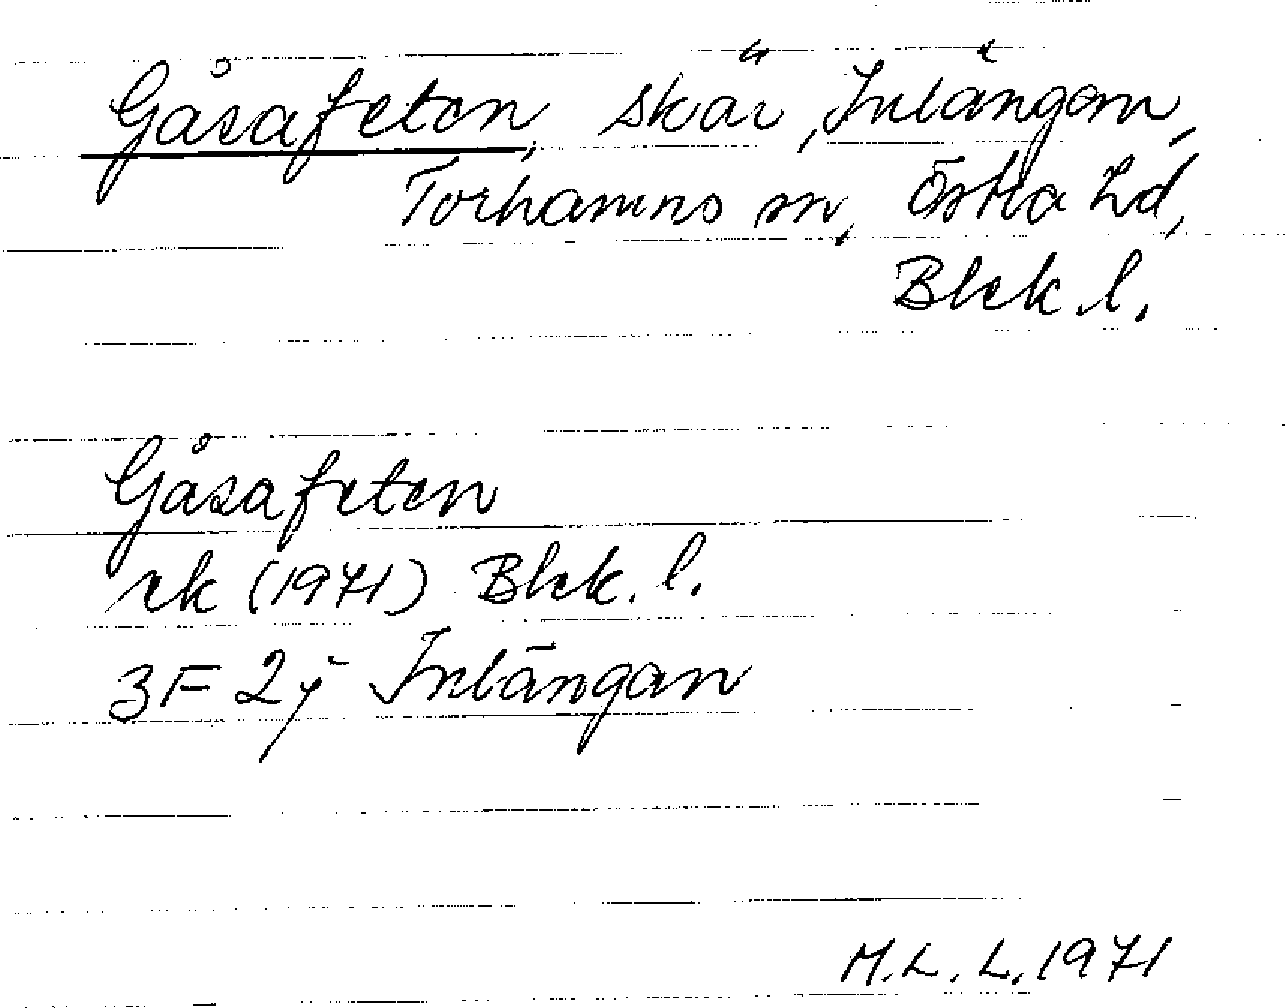 Gåsafeten, skär, Inlängan,
Torhamns sn, Östra hd,
Blek l.
Gåsafeten
ek (1971) Blek. l.
3F 2j Inlängan
M.L.L. 1971